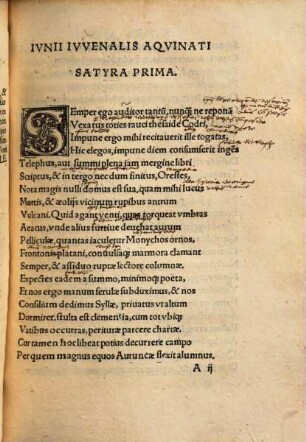 IVNII IVVENALIS AQVINATI
SATYRA PRIMA.
SEmper ego auditor tantũ, nunq̃ ne reponã
Vexatus toties rauci theseide Codri,
Impune ergo mihi recitauerit ille togatas,
Hic elegos, impune diem consumserit ingẽs
Telephus, aut summi plena jam mergine libri
Scriptus, & in tergo nec dum finitus, Orestes,
Nota magis nulli domus est sua, quam mihi lucus
Martis, & æolijs vicinum rupibus antrum
Vulcani. Quid agant venti, quas torqueat vmbras
Aeacus, vnde alius furtiue deuehat aurum
Pelliculæ, quantas iaculetur Monychos ornos,
Frontonis platani, conuulsaq; marmora clamant
Semper, & assiduo ruptæ lectore columnæ.
Expectes eadem a summo, minimoq; poeta,
Et nos ergo manum ferulæ subduximus, & nos
Consilium dedimus Syllæ, priuatus vt altum
Dormiret. stulta est clemẽtia, cum tot vbiq;
Vatibus occurras, perituræ parcere chartæ.
Cur tamen hoc libeat potius decurrere campo
Per quem magnus equos Auruncæ flexit alumnus.
A ij